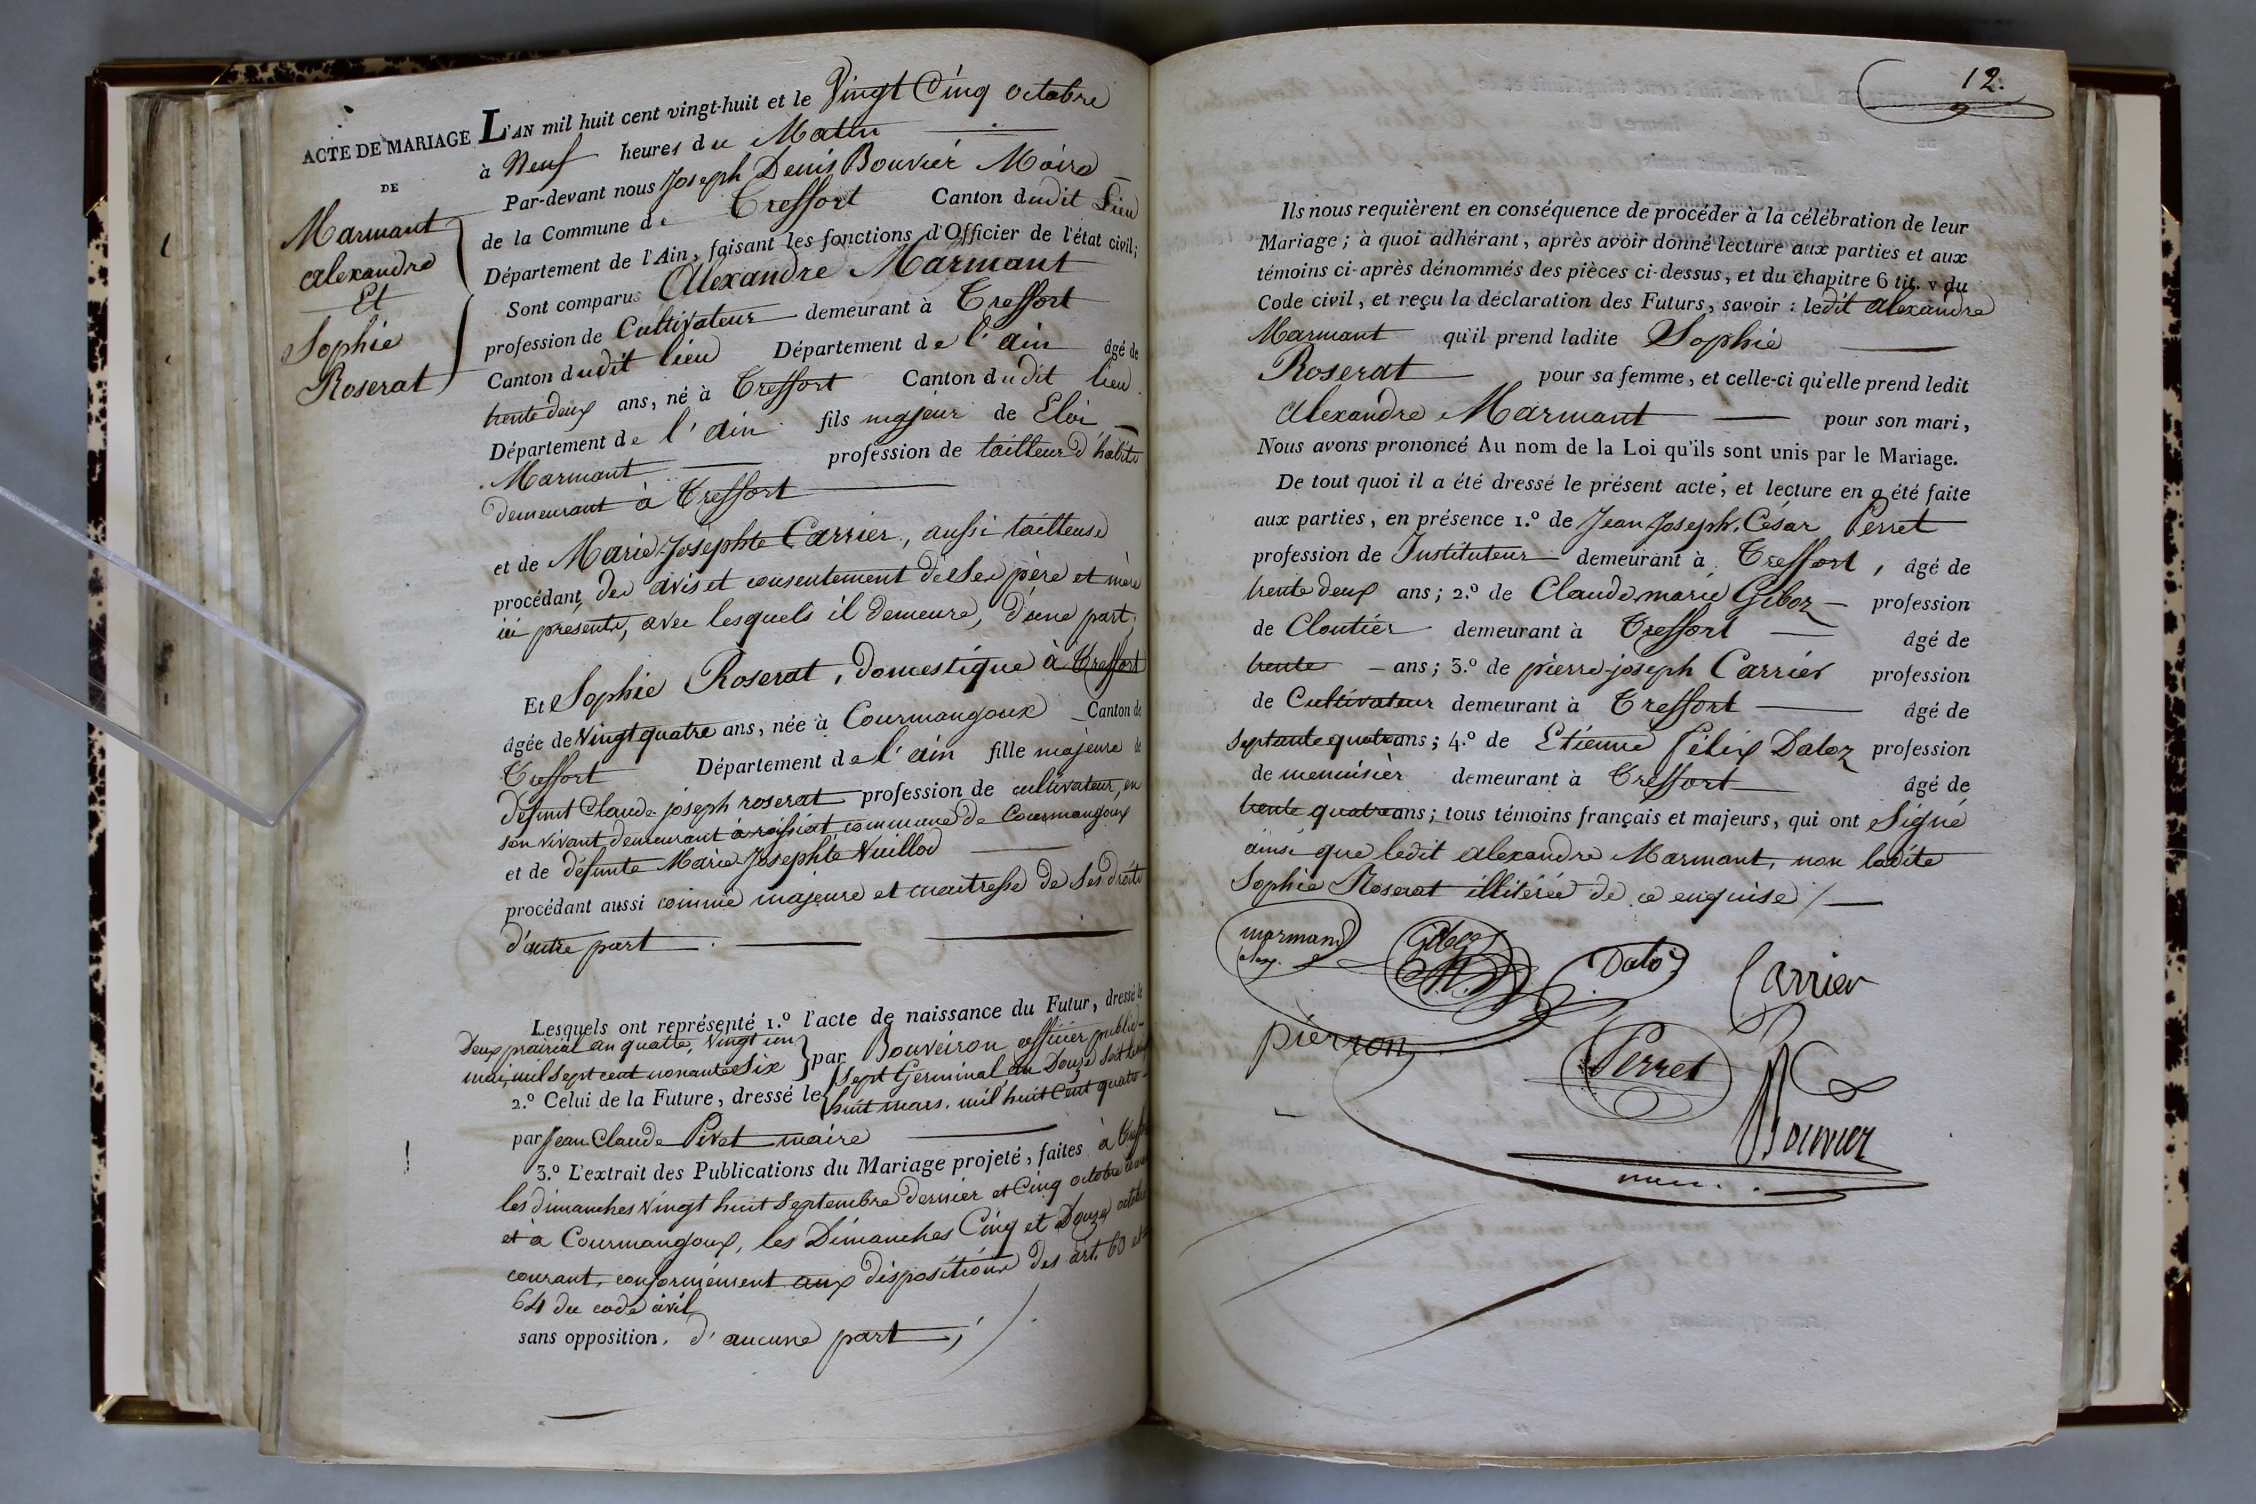 ACTE DE MARIAGE
DE
Marmant
alexandre
Et
Sophie
Roserat
L'AN mil huit cent vingt-huit et le Vingt Cinq octobre
à Neuf heures du Matin
Par-devant nous Joseph Denis Bouvier Maire
de la Commune de Treffort Canton dudit Lieu
Département de l'Ain, faisant les fonctions d'Officier de l'état civil;
Sont comparus Alexandre Marmant
profession de Cultivateur demeurant à Treffort
Canton dudit lieu Département de l'ain âgé de
trente deux ans, né à Treffort Canton dudit lieu
Département de l'ain fils majeur de Eloi
Marmant profession de tailleur d'habits
demeurant à Treffort
et de Marie-Josephte Carrier, aussi tailleuse
procédant, de avis et consentement de ses père et mère
ici présents, avec lesquels il demeure, d'une part.
Et Sophie Roserat, domestique à Treffort
âgée de Vingt quatre ans, née à Courmangoux Canton de
Treffort Département de l'ain fille majeure de
défunt Claude-joseph roserat profession de cultivateur, en
son vivant demeurant à roissiat commune de Courmangoux
et de défunte Marie Josephte Vuillod
procédant aussi comme majeure et maitresse de ses droits
d'autre part.
Lesquels ont représenté 1.º l'acte de naissance du Futur, dressé le
Deux prairial an quatre, Vingt un
mai, mil sept cent nonante Six par Bouveiron officier public
2.º Celui de la Future, dressé le Sept Germinal, an Douze Soit vingt
huit mars, mil huit Cent quatre
par Jean Claude Pivet maire
3.º L'extrait des Publications du Mariage projeté, faites à Treffort
les dimanches Vingt huit Septembre dernier et Cinq octobre
et à Courmangoux, les Dimanches Cinq et Douze octobre
courant, conformément aux dispositions des art. 63 et
64 du code civil
sans opposition, d'aucune part;
12.
Ils nous requièrent en conséquence de procéder à la célébration de leur
Mariage; à quoi adhérant, après avoir donné lecture aux parties et aux
témoins ci-après dénommés des pièces ci-dessus, et du chapitre 6 tit. v du
Code civil, et reçu la déclaration des Futurs, savoir: ledit alexandre
Marmant qu'il prend ladite Sophie
Roserat pour sa femme, et celle-ci qu'elle prend ledit
alexandre Marmant pour son mari,
Nous avons prononcé Au nom de la Loi qu'ils sont unis par le Mariage.
De tout quoi il a été dressé le présent acte, et lecture en a été faite
aux parties, en présence 1.º de Jean Joseph, César Perret
profession de Instituteur demeurant à Treffort, âgé de
trente deux ans; 2.º de Claude marie Giboz profession
de Cloutier demeurant à Treffort âgé de
trente ans; 3.º de pierre-joseph Carrier profession
de Cultivateur demeurant à Treffort âgé de
septante quatre ans; 4.º de Etienne félix Daloz profession
de menuisier demeurant à Treffort âgé de
trente quatre ans; tous témoins français et majeurs, qui ont Signé
ainsi que ledit alexandre Marmant, non ladite
Sophie Roserat illitérée de ce enquise
marmand
Giboz
Daloz
Carrier
pierron
Perret
Bouvier